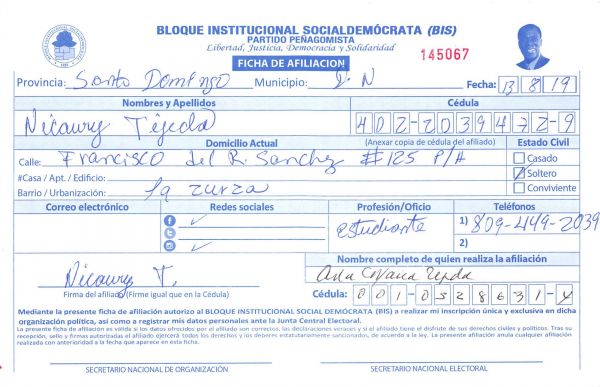 BLOQUE INSTITUCIONAL SOCIALDEMÓCRATA (BIS)
PARTIDO PEÑAGOMISTA
Libertad, Justicia, Democracia y Solidaridad
FICHA DE AFILIACION
145067
Provincia: Santo Domingo Municipio: D.N Fecha: 13 8 19
Nombres y Apellidos Cédula
Nicaury Tejeda 402-2039472-9
Domicilio Actual (Anexar copia de cédula del afiliado) Estado Civil
Calle: Francisco del R. Sanchez #125 P/A Casado
#Casa / Apt. / Edificio: Soltero
Barrio / Urbanización: La zurza Conviviente
Correo electrónico Redes sociales Profesión/Oficio Teléfonos
estudiante 1) 809-449-2039
2)
Nombre completo de quien realiza la afiliación
Nicaury T. Ana
Firma del afiliado (Firme igual que en la Cédula) Cédula: 001-0528631-4
Mediante la presente ficha de afiliación autorizo al BLOQUE INSTITUCIONAL SOCIAL DEMÓCRATA (BIS) a realizar mi inscripción única y exclusiva en dicha
organización política, así como a registrar mis datos personales ante la Junta Central Electoral.
La presente ficha de afiliación es válida si los datos ofrecidos por el afiliado son correctos, las declaraciones veraces y si el afiliado tiene el disfrute de sus derechos civiles y políticos. Tras su
recepción, sello y firmas autorizadas el afiliado ejercerá todos los derechos y los deberes estatutariamente sancionados, de acuerdo a la ley. La presente afiliación anula cualquier afiliación
realizada con anterioridad a la fecha que aparece en esta ficha.
SECRETARIO NACIONAL DE ORGANIZACIÓN SECRETARIO NACIONAL ELECTORAL